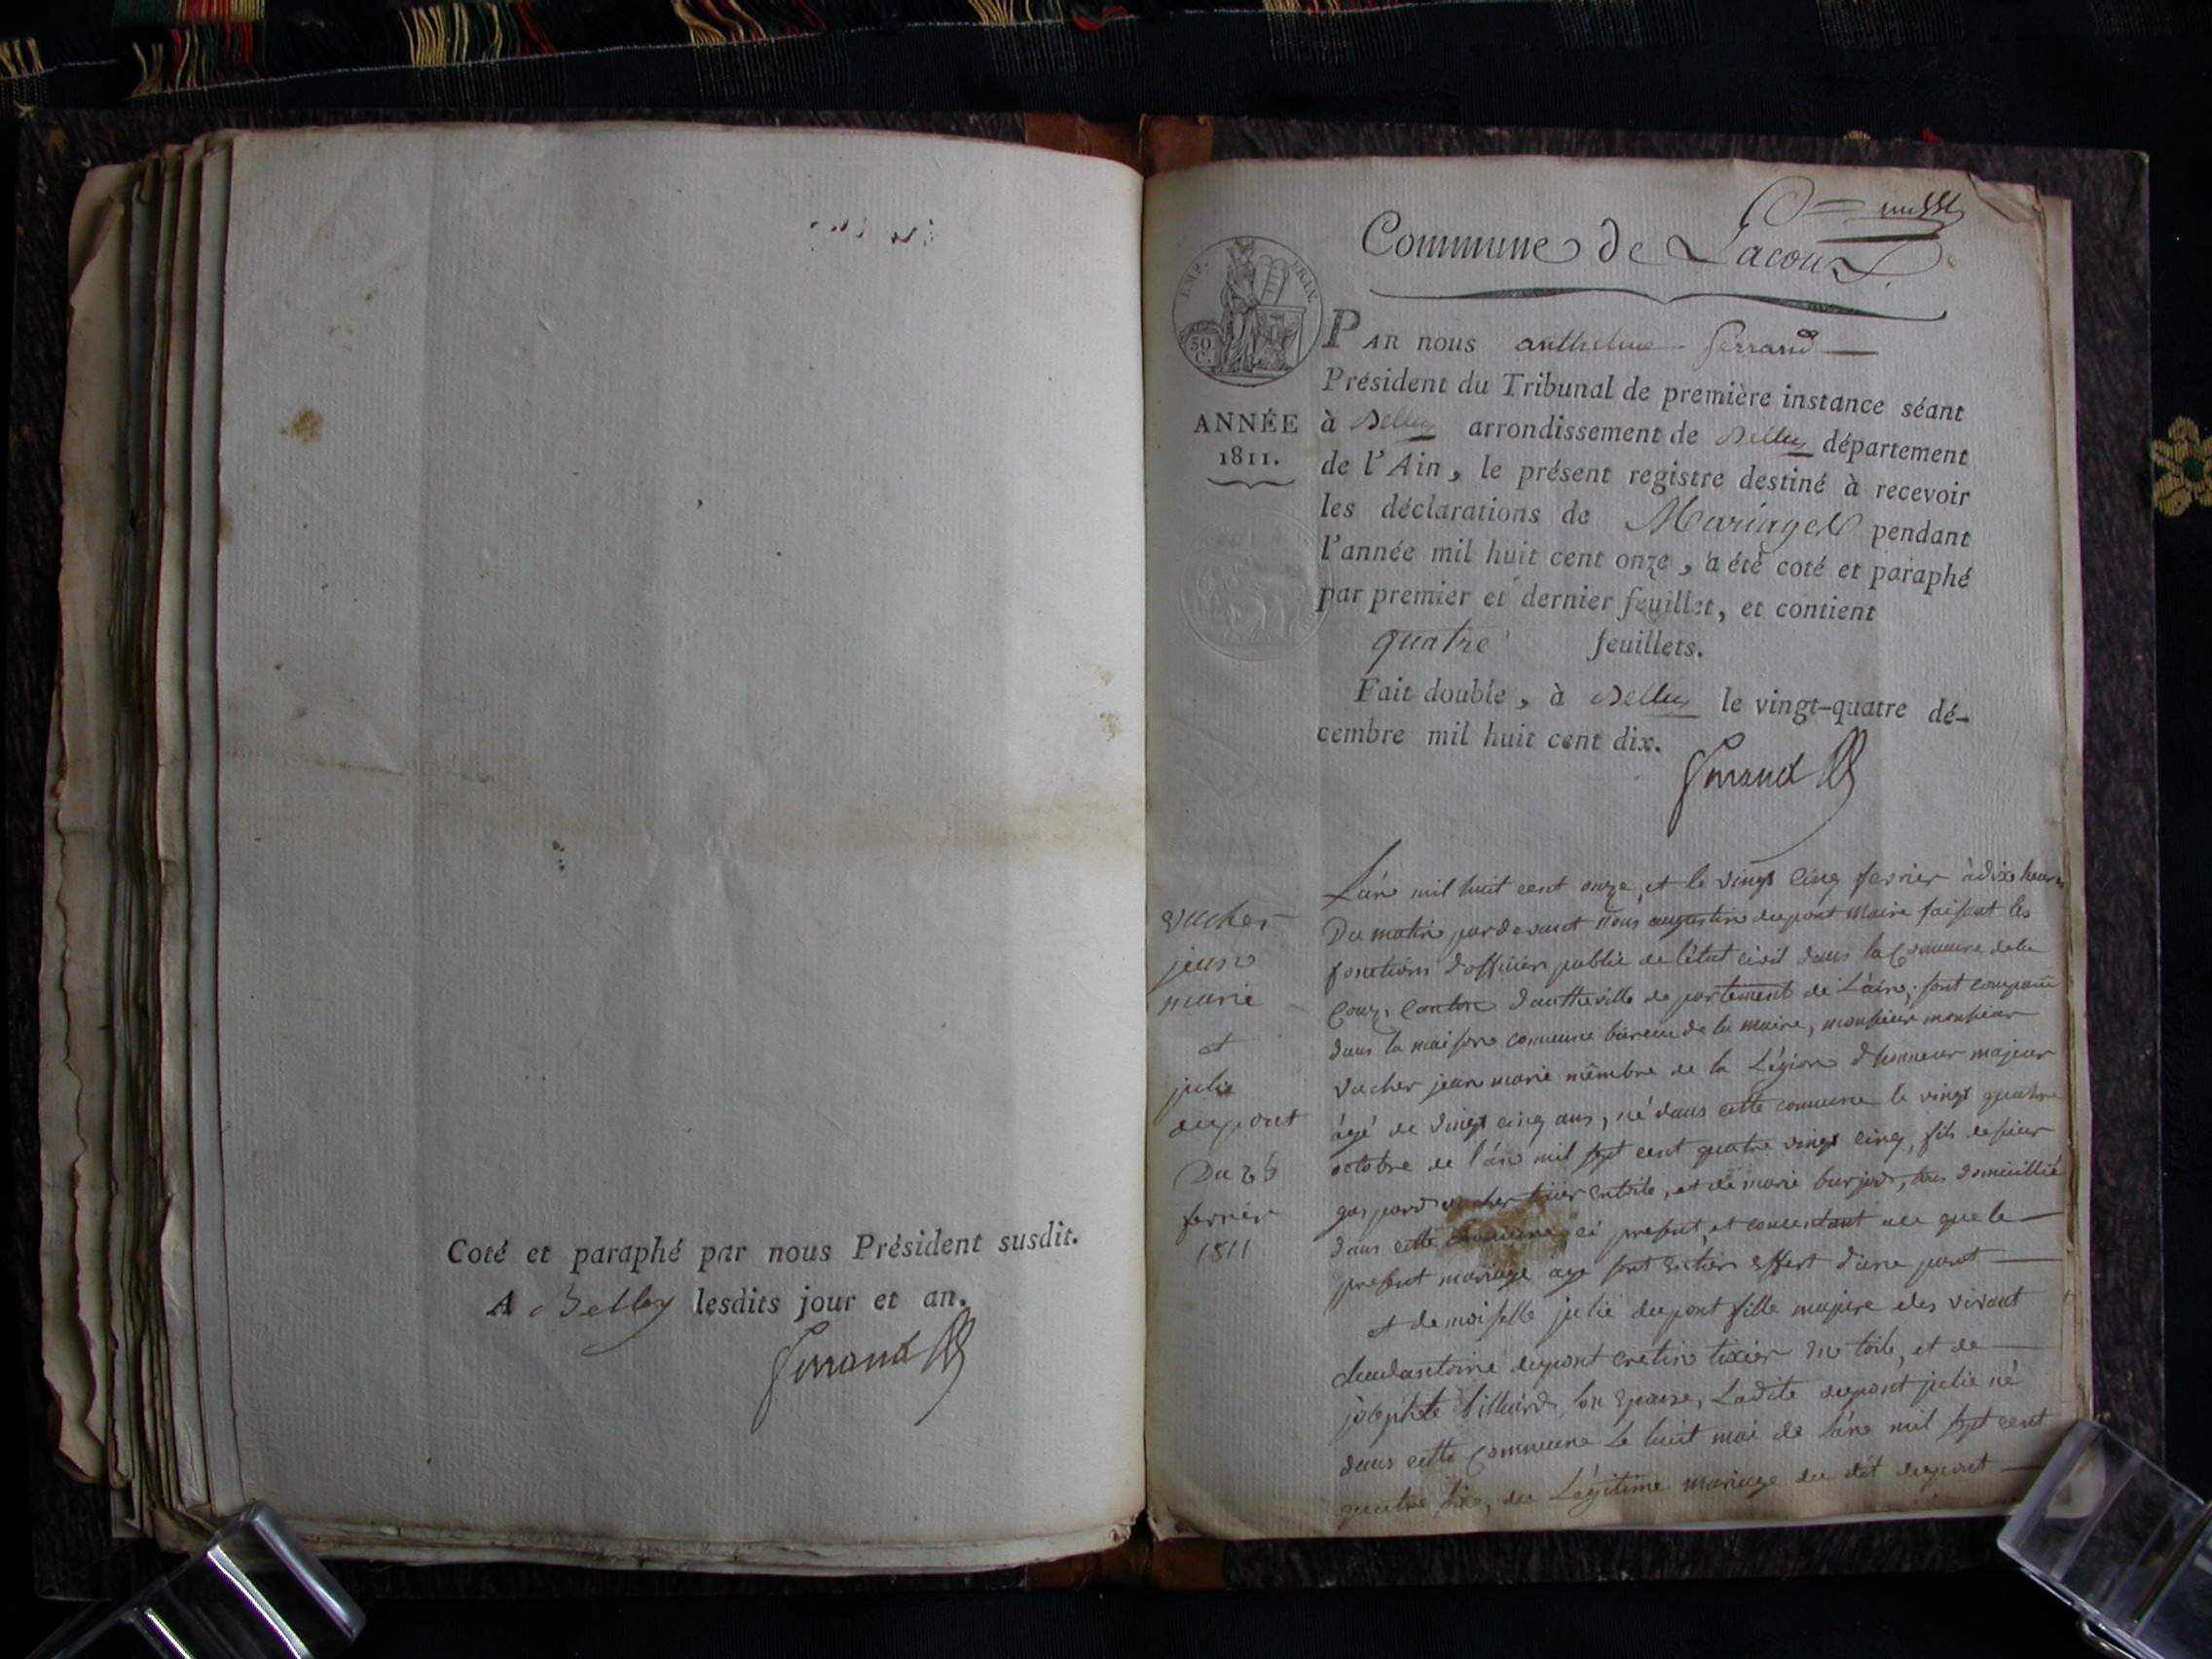 Coté et paraphé par nous Président susdit.
A Belley lesdits jour et an.
Ferrand
Commune de Lacoux
EMP. FRAN.
50
C.
ANNÉE
1811.
PAR nous anthelme ferrand
Président du Tribunal de première instance séant
à Belley arrondissement de Belley département
de l'Ain, le présent registre destiné à recevoir
les déclarations de Mariages pendant
l'année mil huit cent onze, a été coté et paraphé
par premier et dernier feuillet, et contient
quatre feuillets.
Fait double, à Belley le vingt-quatre dé-
cembre mil huit cent dix.
Ferrand
vacher
jean
marie
et
julie
dupont
Du 25
fevrier
1811
L'an mil huit cent onze, et le vingt cinq fevrier à dix heures
Du matin pardevant nous augustin dupont Maire faisant les
fonctions d'officier public de l'état civil dans la Commune de la
Coux, Canton d'autheville departement de L'ain; sont comparu
dans la maison commune bureau de la maire, monsieur monsieur
vacher jean marie mêmbre de la Légion d'honneur majeur
âgé de vingt cinq ans, né dans cette commune le vingt quatre
octobre de l'an mil sept cent quatre vingt cinq, fils de sieur
gaspard vacher tixier en toile, et de marie burjod, tous domicillié
dans cette commune ci present, et consentant a ce que le
present mariage aye sont entier effert d'une part
et demoiselle julie dupont fille majure des vivant
claudantoine dupont cretin tixier en toile, et de
josephte billiard son epouse, Ladite dupont julie né
dans cette Commune Le huit mai de l'an mil sept cent
quatre dix, du Légitime mariage du dit dupont